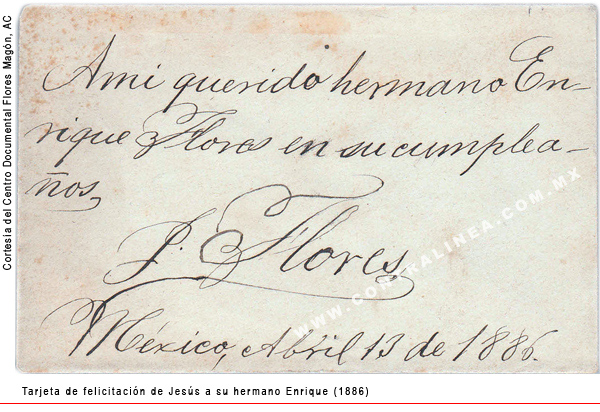 Cortesía del Centro Documental Flores Magón, AC
A mi querido hermano En-
rique Flores en su cumplea-
ños,
J. Flores
México, Abril 13 de 1886.
WWW.CONTRALINEA.COM.MX
Tarjeta de felicitación de Jesús a su hermano Enrique (1886)